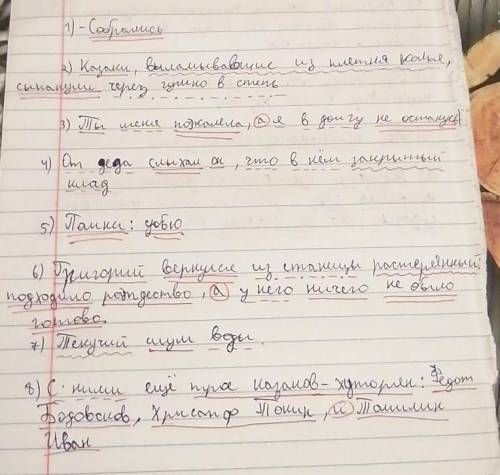 1) - Собрались
2) Казаки, выламывавшие из плетня колья,
сыпанули через гумно в степь.
3) Ты меня пожалела, а я в долгу не останусь!
4) От деда слыхал он, что в нём закрытый
клад
5) Помни: убью
6) Григорий вернулся из станицы растерянный,
подходило рождество, а у него ничего не было
готово.
7) Текучий шум воды.
8) С ними ещё трое казаков-хуторян: Федот
Бодовсков, Хрисанф Токин, и Томилин
Иван